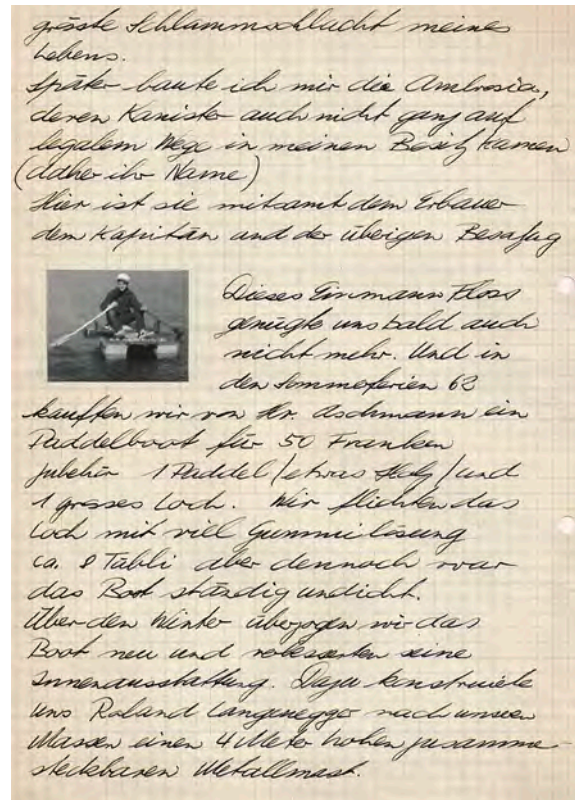 grösste Schlammschlacht meines
Lebens.
Später baute ich mir die Ambrosia,
deren Kanister auch nicht ganz auf
legalem Wege in meinen Besitz kamen
(daher ihr Name)
Hier ist sie mitsamt dem Erbauer
dem Kapitän und der übrigen Besatzug
Dieses Einmann Floss
genügte uns bald auch
nicht mehr. Und in
den Sommerferien 62
kauften wir von Hr. Aschmann ein
Paddelboot für 50 Franken
Zubehör 1 Paddel/etwas Holz/und
1 grosses Loch. Wir flickten das
Loch mit viel Gummilösung
ca. 8 Tübli aber dennoch war
das Boot ständig undicht.
Über den Winter überzogen wir das
Boot neu und verbesserten seine
Innenausstattung. Dazu konstruierte
uns Roland Langenegger nach unseren
Massen einen 4 Meter hohen zusamme-
steckbaren Metallmast.